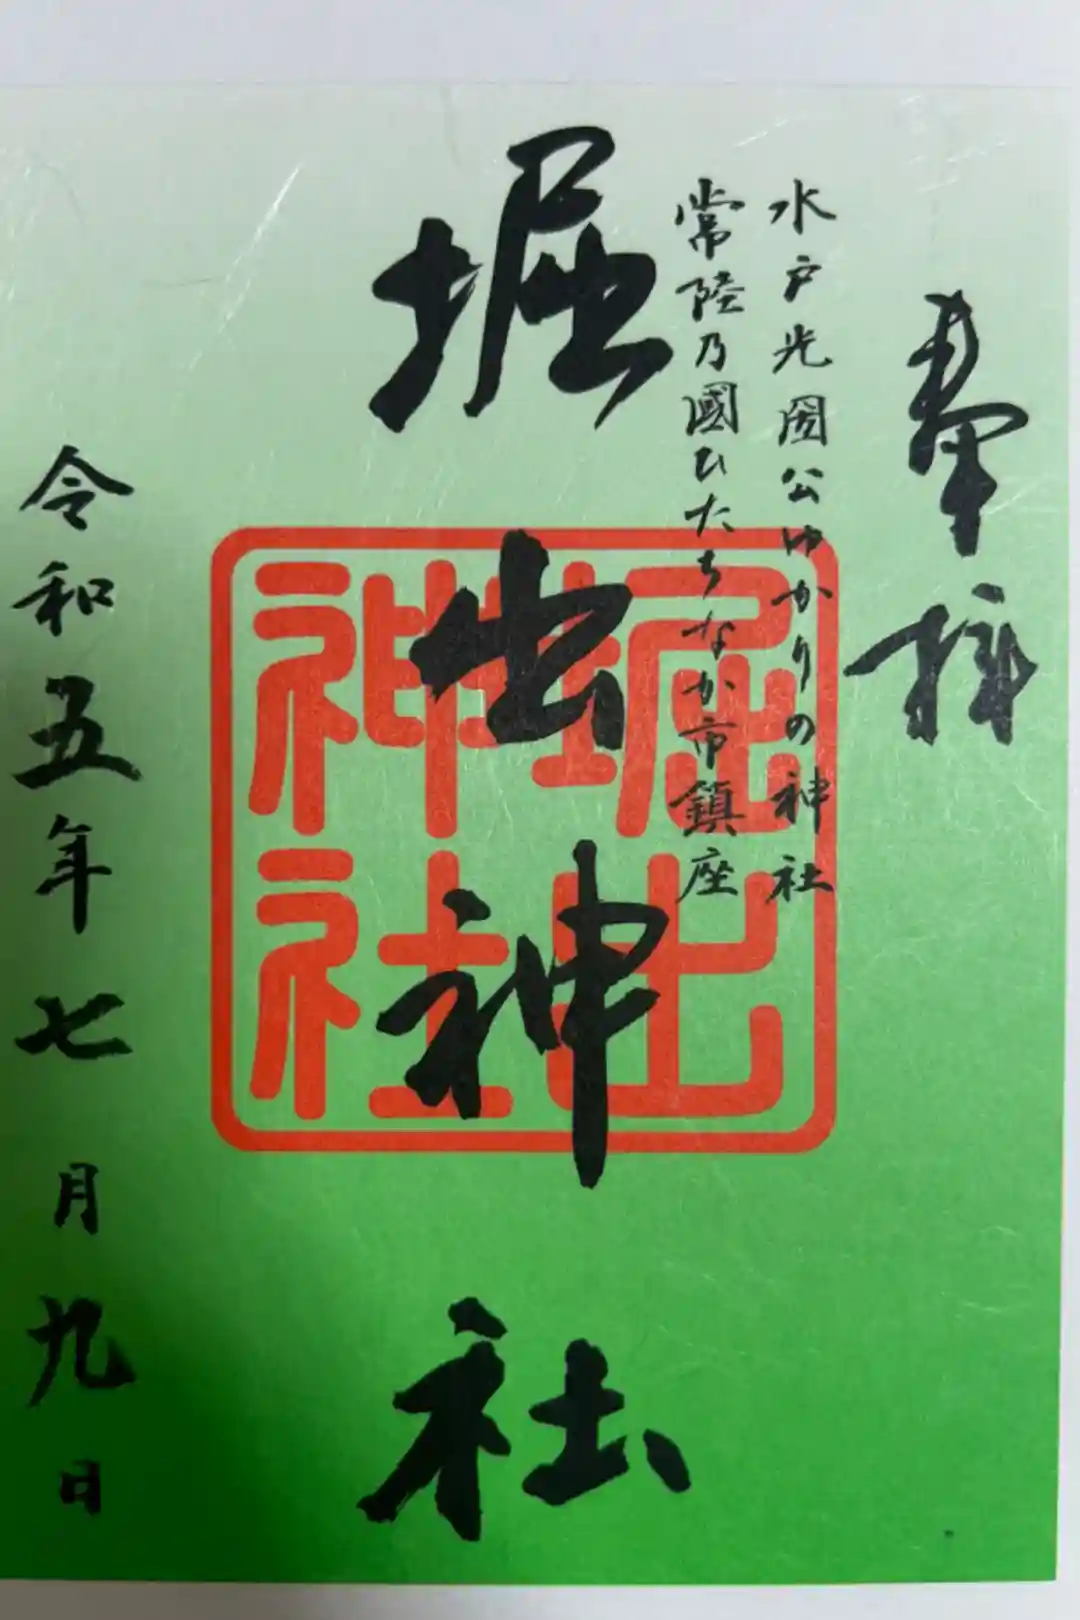 奉拝
水戸光圀公ゆかりの神社
常陸乃國ひたちなか市鎮座
堀出神社
堀出
神社
令和五年七月九日